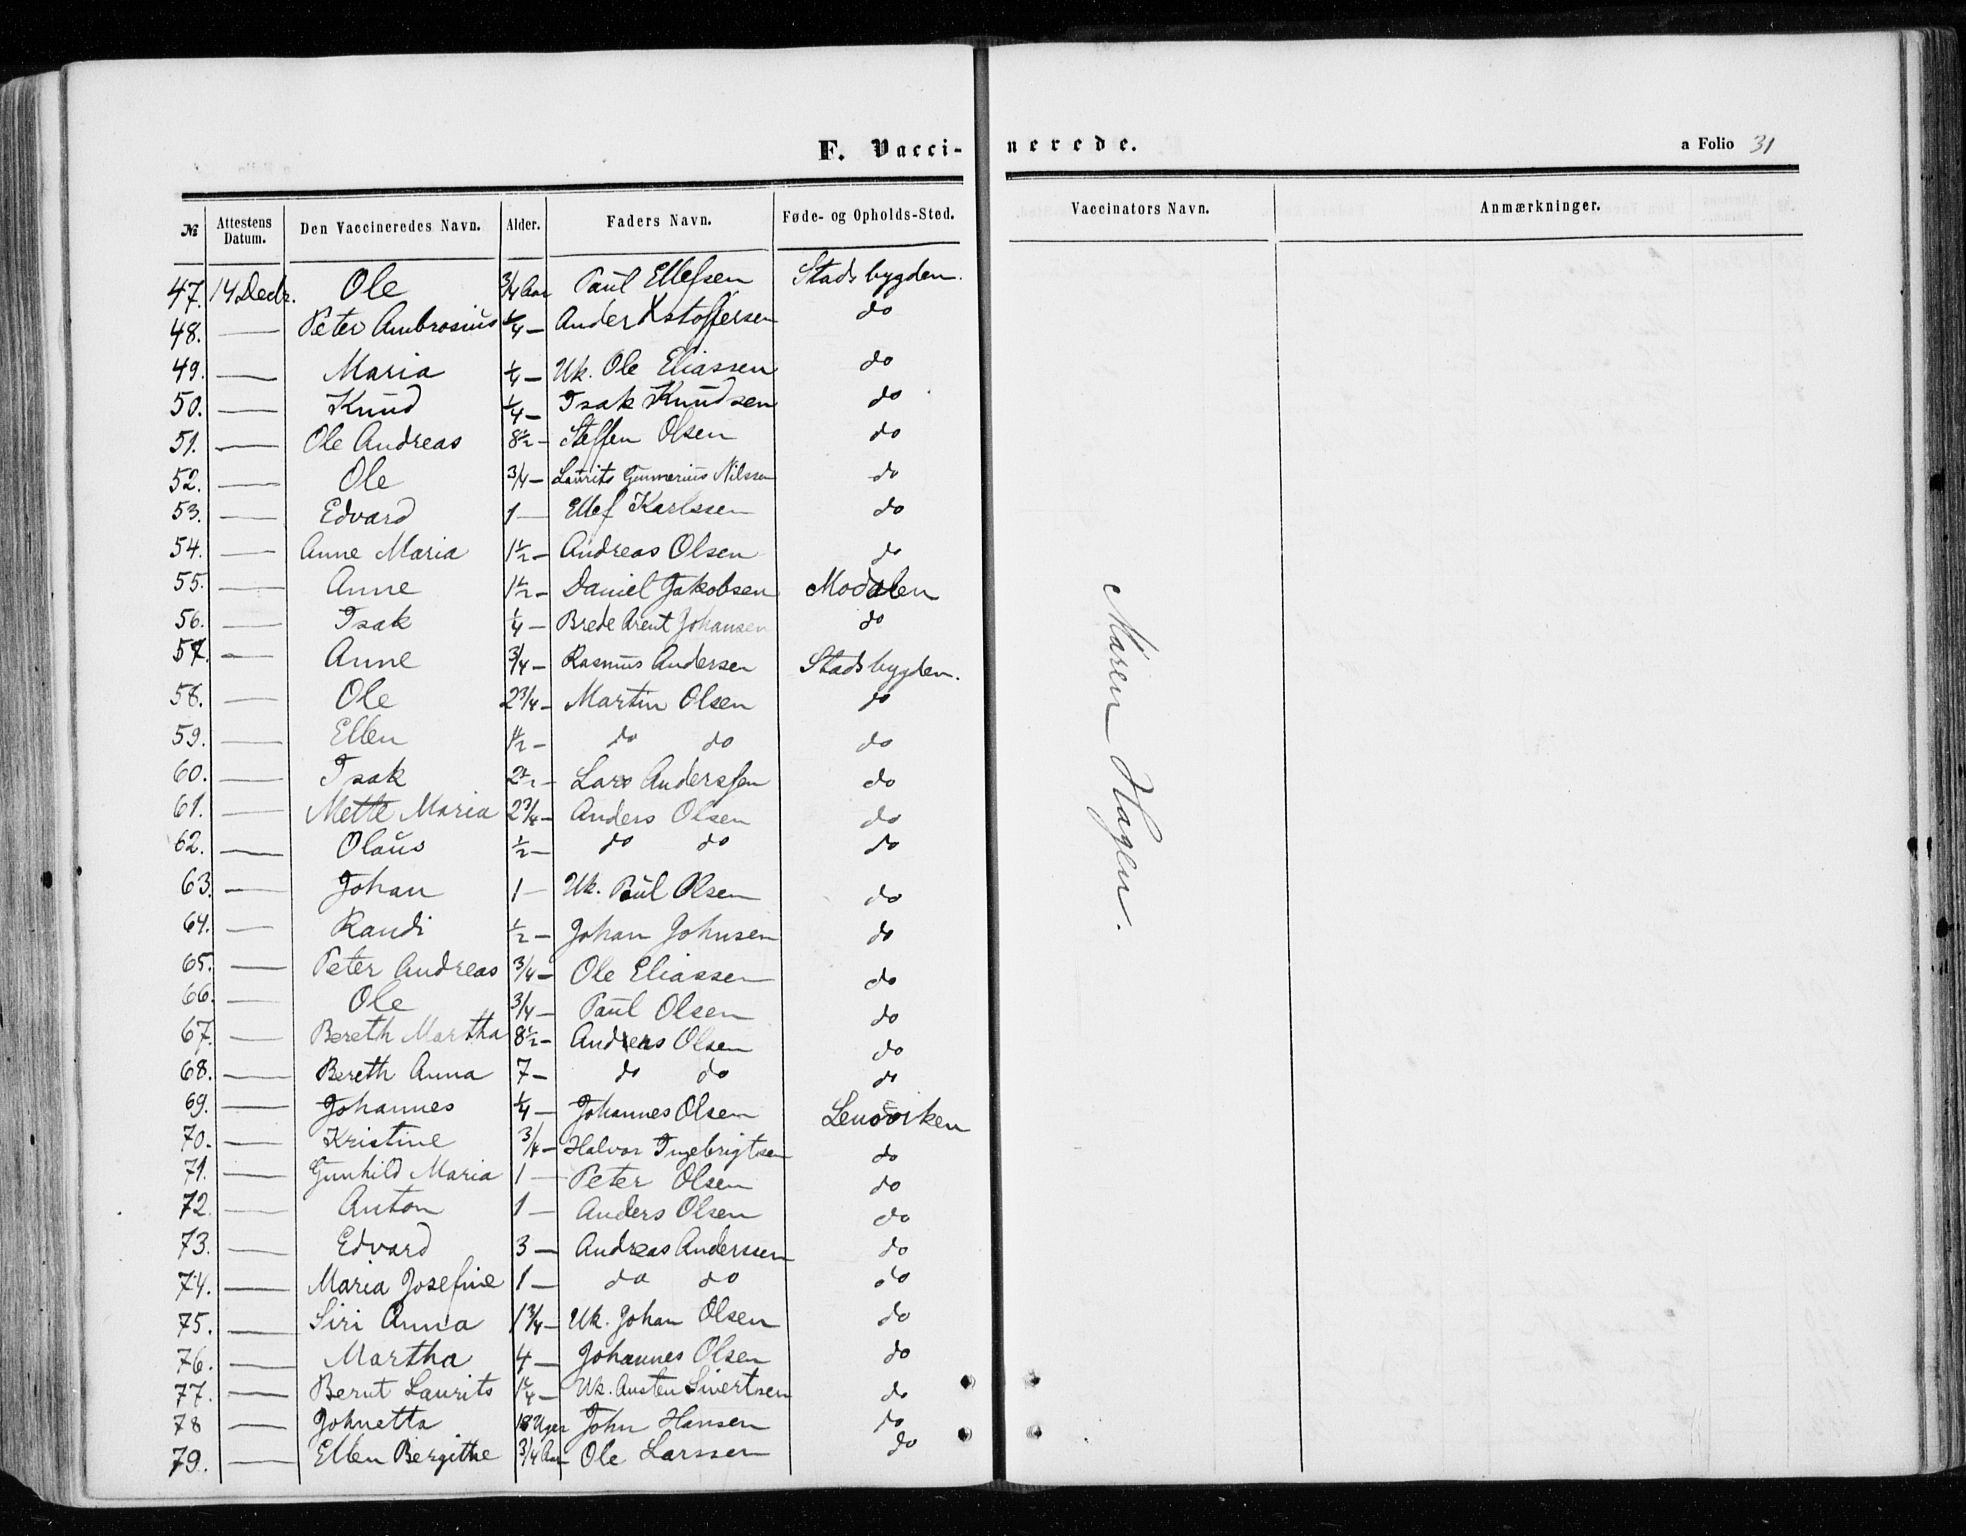 F. Vaccinerede.
a Folio 31
№ Attestens Datum. Den Vaccineredes Navn. Alder. Faders Navn. Føde- og Opholds-Sted. Vaccinators Navn. Anmærkninger.
47. 14 Decbr. Ole 3/4 Aar Paul Ellefsen Stadsbygden.
48. — Peter Ambrosius 1/4 — Ander Xstoffersen do
49. — Maria 1/4 — Uk. Ole Eliassen do
50. — Knud 1/4 — Isak Knudsen do
51. — Ole Andreas 8 1/2 — Steffen Olsen do
52. — Ole 3/4 — Laurits Gunnerius Nilssen do
53. — Edvard 1 — Ellef Karlssen do
54. — Anne Maria 1 1/2 — Andreas Olsen do
55. — Anne 1 1/2 — Daniel Jakobsen Modalen
56. — Isak 1/4 — Brede Arent Johansen do
57. — Anne 3/4 — Rasmus Andersen Stadsbygden.
58. — Ole 2 3/4 — Martin Olsen do
59. — Ellen 1/2 — do do do
60. — Isak 2 1/2 — Lars Anderssen do
61. — Mette Maria 2 3/4 — Anders Olsen do
62. — Olaus 1/2 — do do do
63. — Johan 1 — Uk. Paul Olsen do
64. — Randi 1/2 — Johan Johnsen do
65. — Peter Andreas 3/4 — Ole Eliassen do
66. — Ole 3/4 — Paul Olsen do
67. — Bereth Martha 8 1/2 — Andreas Olsen do
68. — Bereth Anna 7 — do do do
69. — Johannes 1/4 — Johannes Olsen Lensviken
70. — Kristine 3/4 — Halvor Ingebrigtsen do
71. — Gunhild Maria 1 — Peter Olsen do
72. — Anton 1 — Anders Olsen do
73. — Edvard 3 — Andreas Anderssen do
74. — Maria Josefine 1 — do do do
75. — Siri Anna 1 3/4 — Uk. Johan Olsen do
76. — Martha 4 — Johannes Olsen do
77. — Bernt Laurits 1 1/4 — Uk. Austen Sivertsen do
78 — Johnetta Uger John Hansen do
79. — Ellen Bergithe 3/4 Aar Ole Larssen do
Maren Hagen.